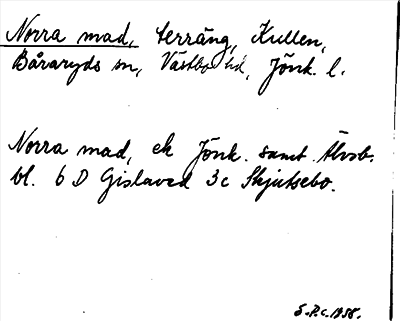 Norra mad, terräng, Kullen,
Båraryds sn, Västbo hd, Jönk. l.
Norra mad, ek Jönk. samt Älvsb.
bl. 6 D Gislaved 3c Skjutsebo.
S.P.c. 1958.